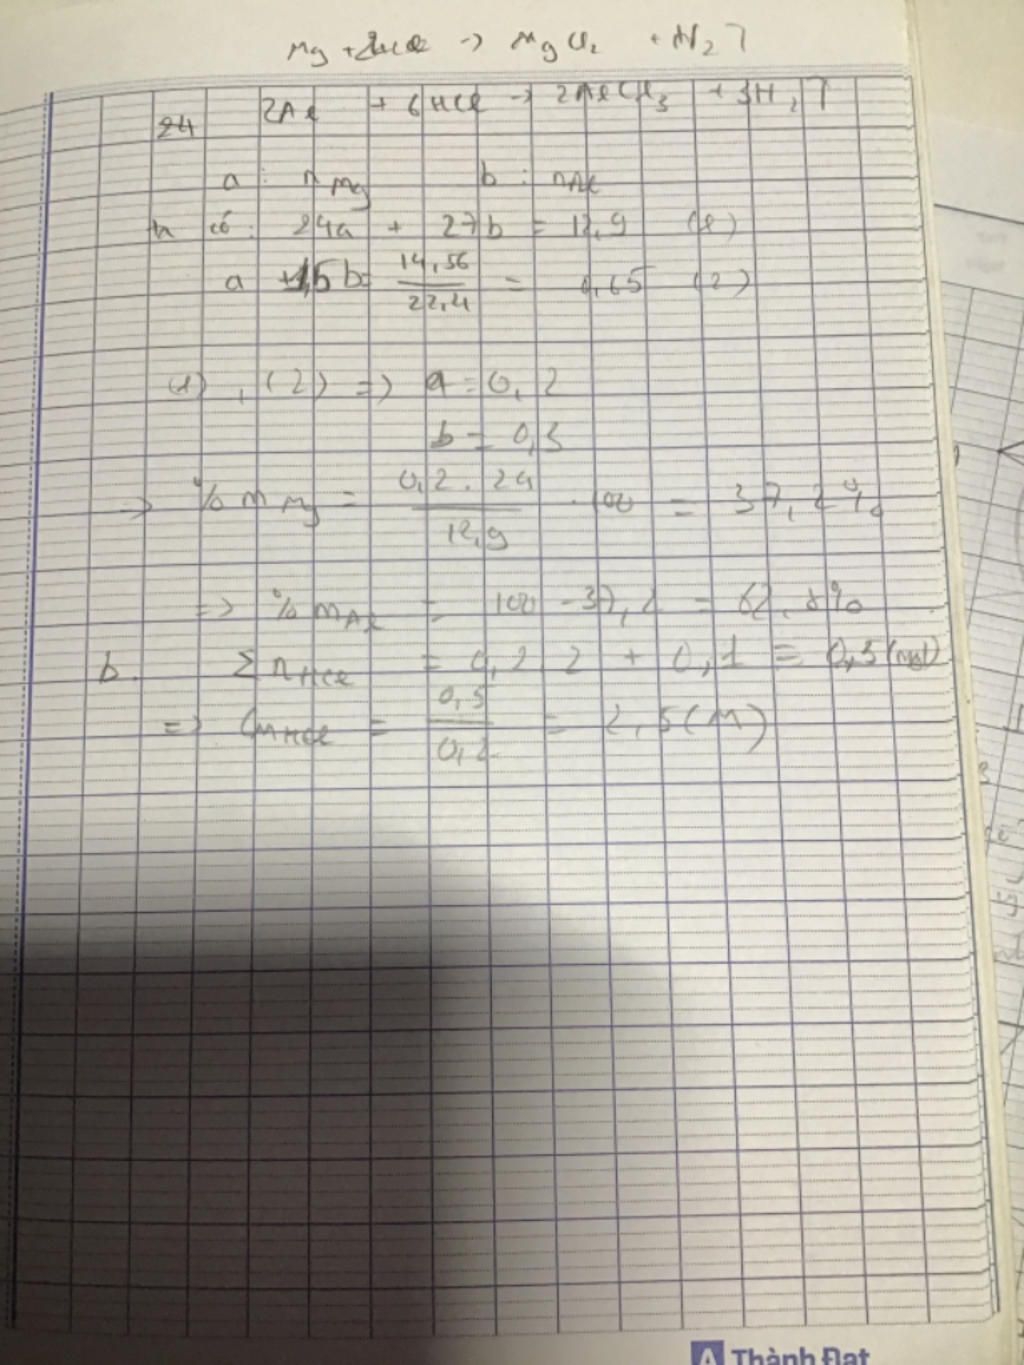 Mg + 2HCl -> MgCl2 + H2↑
24 2Al + 6HCl -> 2AlCl3 + 3H2↑
a : nMg b : nAl
ta có : 24a + 27b = 12,9 (1)
a + 1,5b = 14,56/22,4 = 0,65 (2)
(1) , (2) => a = 0,2
b = 0,3
=> %mMg = 0,2.24/12,9 . 100 = 37,2%
=> %mAl = 100 - 37,2 = 62,8%
b. ΣnHCl = 0,2 2 + 0,1 = 0,5 (mol)
=> CMHCl = 0,5/0,2 = 2,5(M)
Thành Đạt